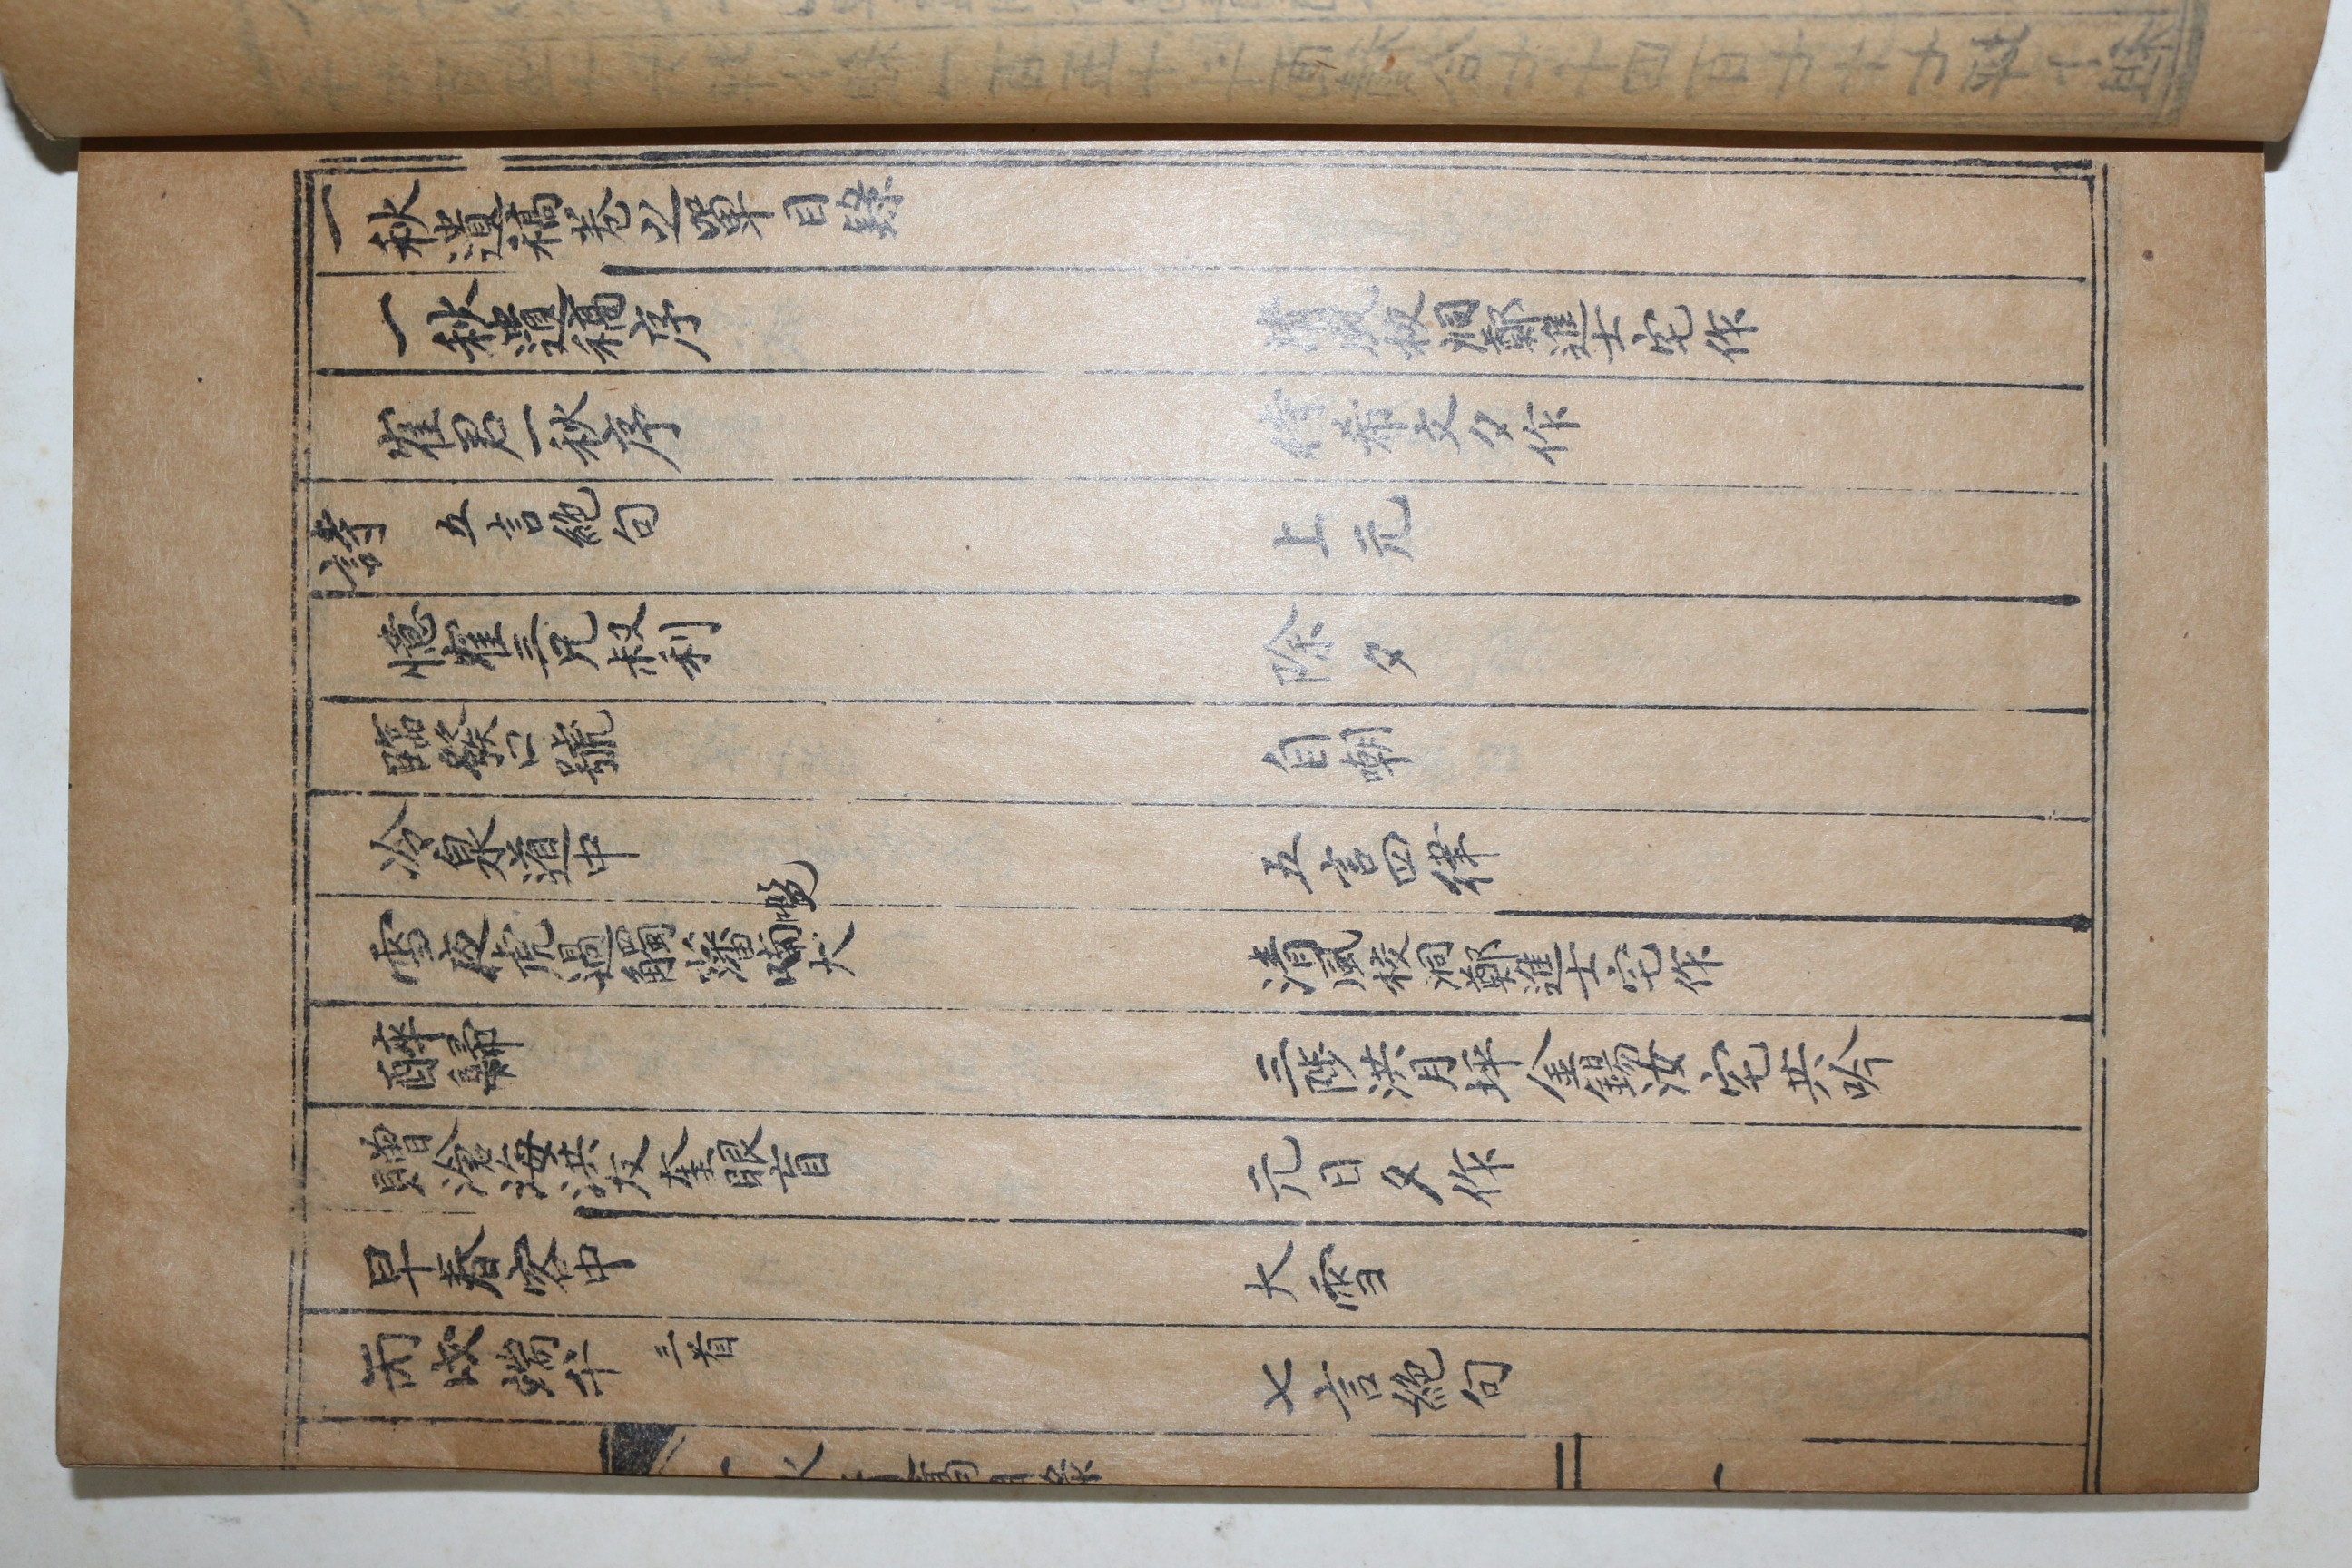 一秋遺稿卷之單目錄
一秋遺稿序 清風校洞鄭進士宅作
崔君一秋序 侍希文夕作
詩 五言絶句 上元
憶崔三兄叔利 除夕
臨發口號 自嘲
冷泉道中 五言四律
雪夜虎過觸藩喃犬 清風校洞鄭進士宅作
醉歸 三陟洪月坪金錫汝宅共吟
贈滄海洪友奎眼盲 元日夕作
早春客中 大雪
丙戌端午 三首 七言絶句